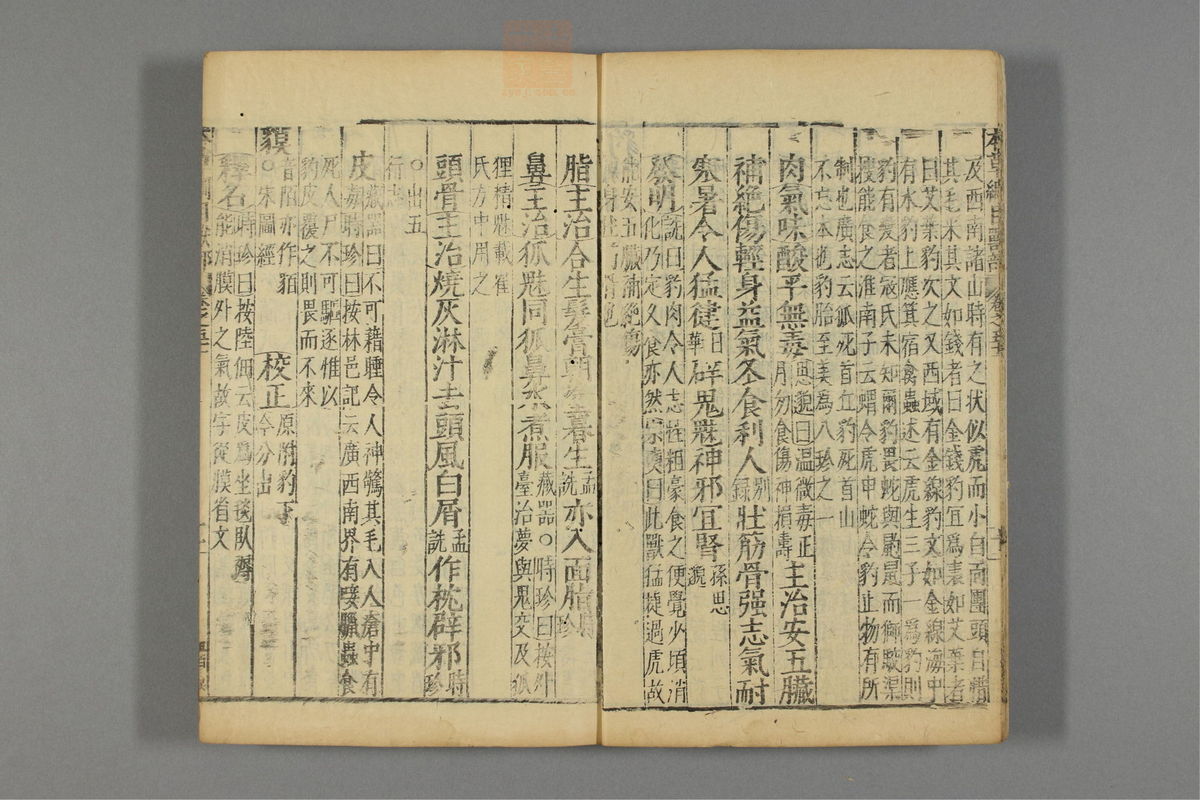 本草綱目獸部 卷之五十一
及西南諸山時有之狀似虎而小白面團頭自惜
其毛采其文如錢者曰金錢豹宜爲裘如艾葉者
曰艾葉豹次之又西域有金線豹文如金線海中
有水豹上應箕宿禽蟲述云虎生三子一爲豹則
豹有變者寇氏未知爾豹畏蛇與鼩鼠而獅駮渠
搜能食之淮南子云蝟令虎申蛇令豹止物有所
制也廣志云狐死首丘豹死首山
不忘本也豹胎至美爲八珍之一
肉氣味酸平無毒思邈曰温微毒正
月勿食傷神損壽主治安五臟
補絶傷輕身益氣冬食利人别
録壯筋骨强志氣耐
寒暑令人猛健日
華辟鬼魅神邪宜腎孫思
邈
發明詵曰豹肉令人志性粗豪食之便覺少頃消
化乃定久食亦然宗奭曰此獸猛捷過虎故
能安五臟補絶傷
輕身
脂主治合生髮膏朝塗暮生孟
詵亦入面脂時
珍
鼻主治狐魅同狐鼻水煮服藏器○時珍曰按外
臺治夢與鬼交及狐
狸精魅載崔
氏方中用之
頭骨主治燒灰淋汁去頭風白屑孟
詵作枕辟邪時
珍
○出五
行志
皮藏器曰不可藉睡令人神驚其毛入人瘡中有
毒時珍曰按林邑記云廣西南界有唼臘蟲食
死人尸不可驅逐惟以
豹皮覆之則畏而不來
貘音陌亦作貊
○宋圖經校正原附豹下
今分出
釋名時珍曰按陸佃云皮爲坐毯臥褥
能消膜外之氣故字從膜省文